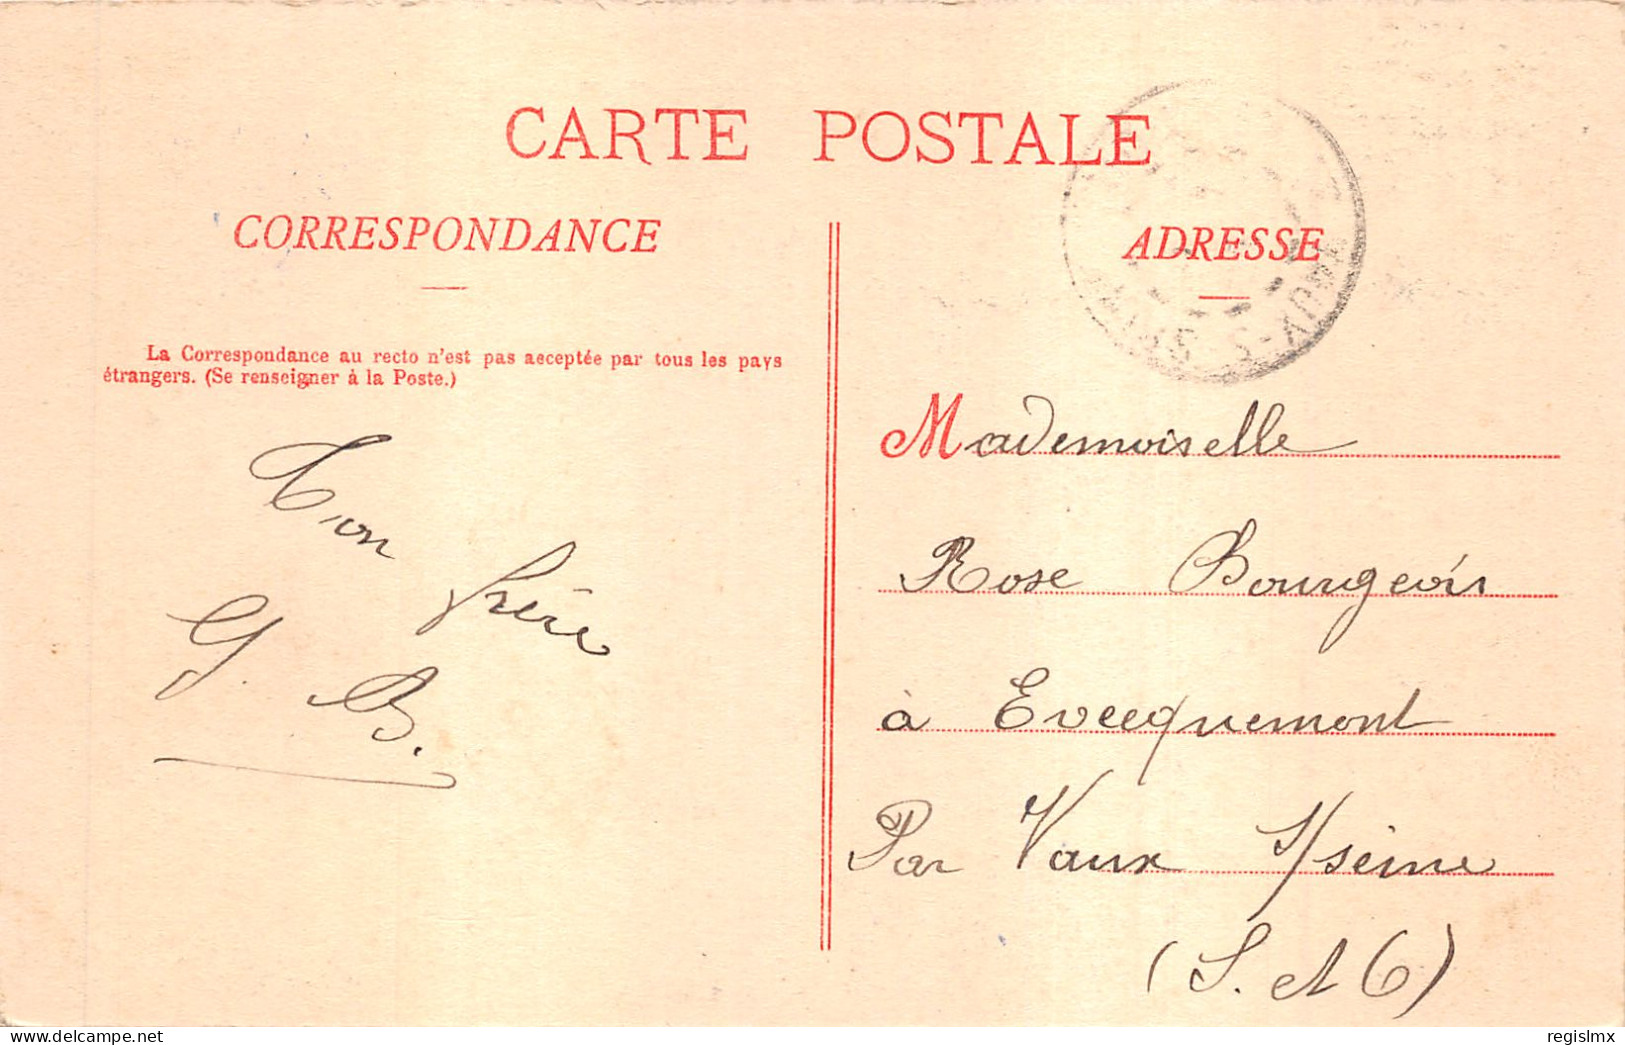 CARTE POSTALE
CORRESPONDANCE
La Correspondance au recto n'est pas acceptée par tous les pays
étrangers. (Se renseigner à la Poste.)
Ton
frère
G. B.
ADRESSE
Mademoiselle
Rose Bourgeois
à Evecquemont
Par Vaux s/seine
(S. et O)
www.delcampe.net
regislmx